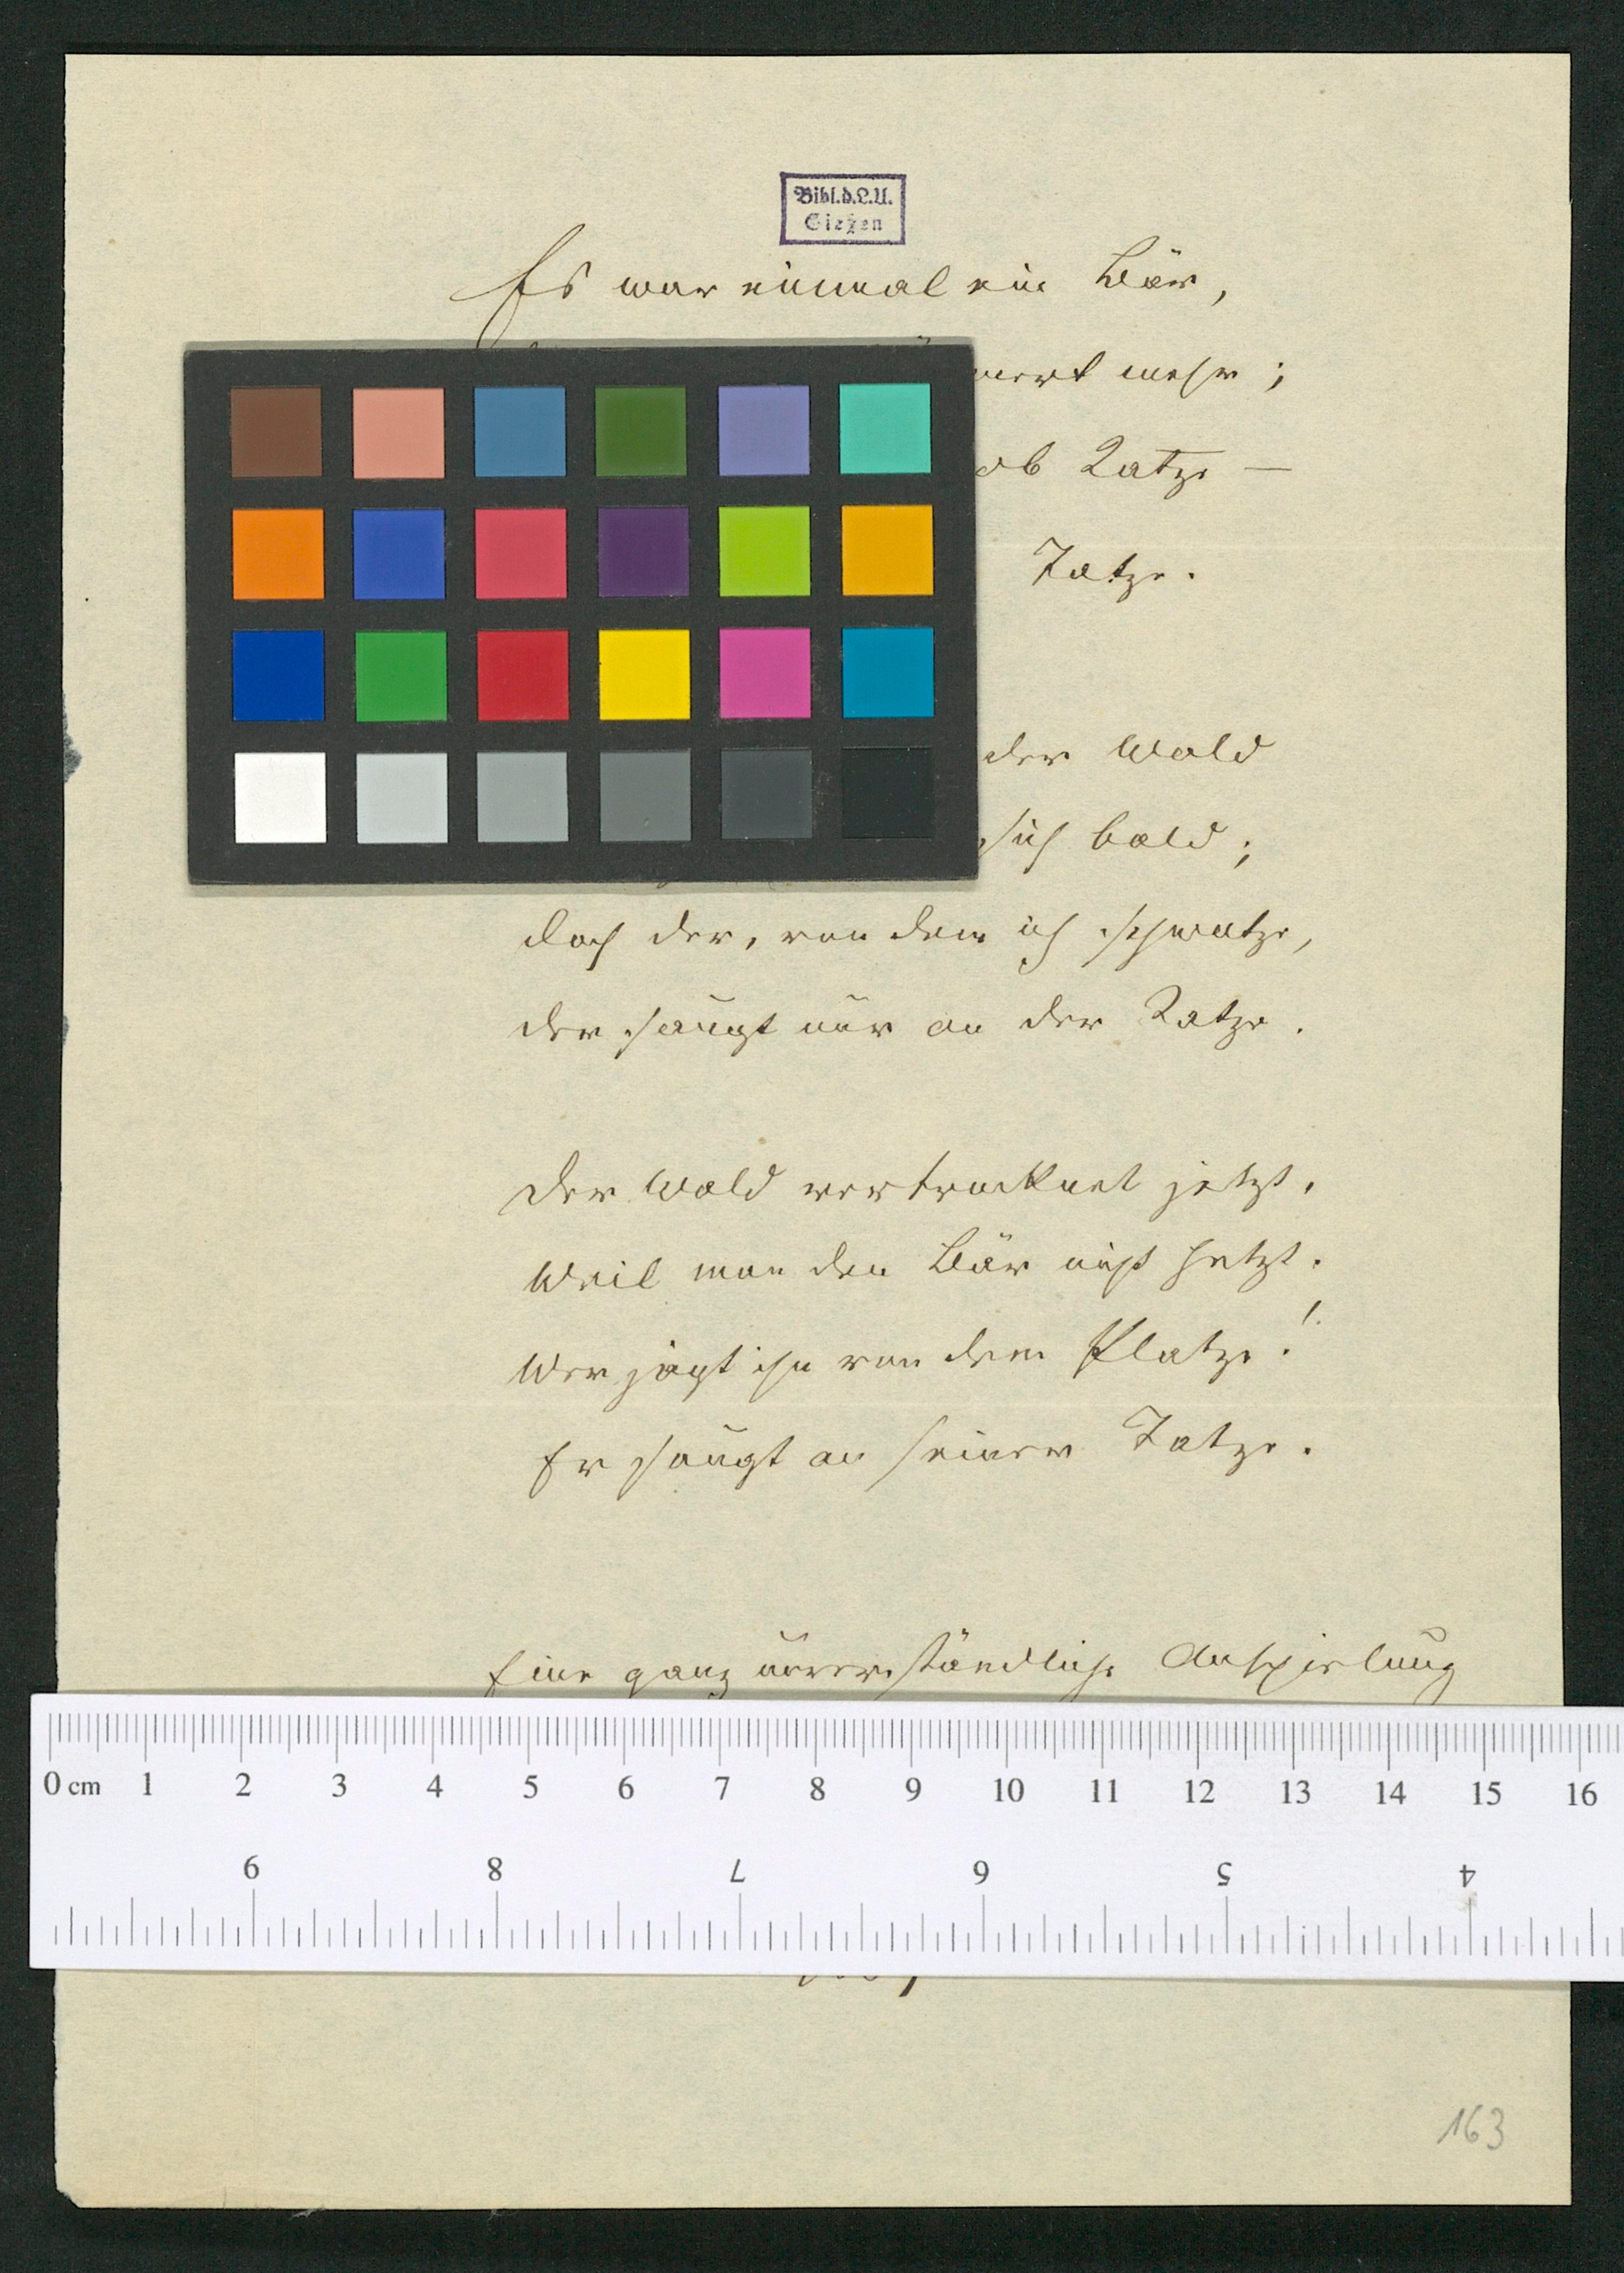 Bibl.d.L.U.
Gießen
Es war einmal ein Bär,
mehr;
ob Ratze —
Tatze.
der Wald
sich bald;
doch der, von dem ich schwatze,
der saugt nur an der Ratze.
Der Wald vertrocknet jetzt,
Weil man den Bär nicht hetzt.
Wer jagt ihn von dem Platze!
Er saugt an seiner Tatze.
Eine ganz unverständliche Anspielung
0 cm 1 2 3 4 5 6 7 8 9 10 11 12 13 14 15 16
9 8 7 6 5 4
163